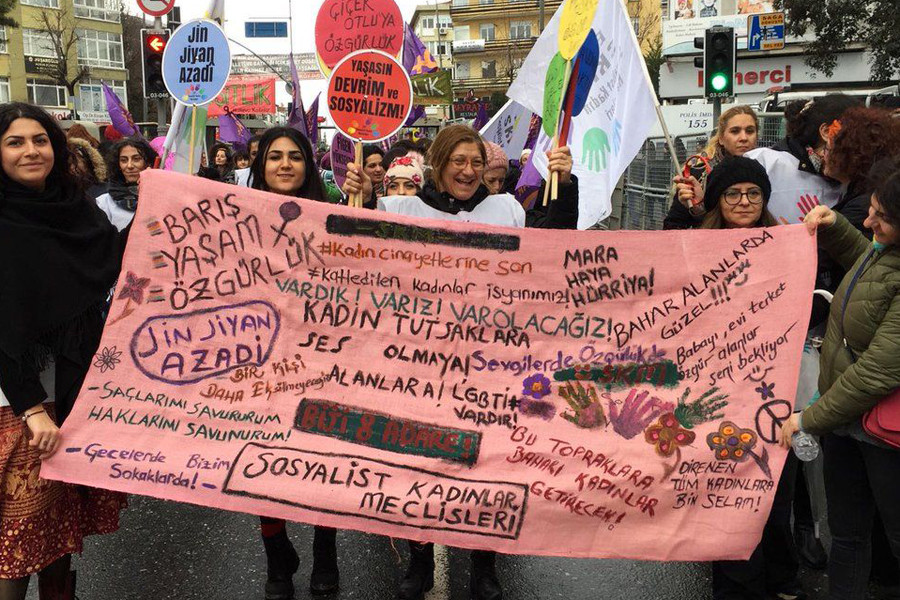 ÇİÇEK
OTLUYA
ÖZGÜRLÜK
YAŞASIN
DEVRİM ve
SOSYALİZM!
Jin
Jiyan
Azadi
Jin
merci
POLİS 155
03-046
03-045
=BARIŞ
=YAŞAM
=ÖZGÜRLÜK
#Kadın cinayetlerine son
#Katledilen kadınlar isyanımız!
VARDIK! VARIZ! VAROLACAĞIZ!
MARA
HAYA
HÜRRİYA!
BAHAR ALANLARDA
GÜZEL!!!
JİN JİYAN
AZADİ
KADIN TUTSAKLARA
SES OLMAYA!
ALANLARA!
BİR KİŞİ
DAHA Eksilmeyeceğiz
Sevgilerde Özgürlükde
LGBTİ
VARDIR!
Babayı, evi terket
özgür alanlar
seni bekliyor
SAÇLARIMI SAVURURUM
HAKLARIMI SAVUNURUM!
- Gecelerde Bizim
Sokaklarda! -
SOSYALİST KADINLAR
MECLİSLERİ
BU TOPRAKLARA
BAHARI KADINLAR
GETİRECEK!
DİRENEN
TÜM KADINLARA
BİN SELAM!